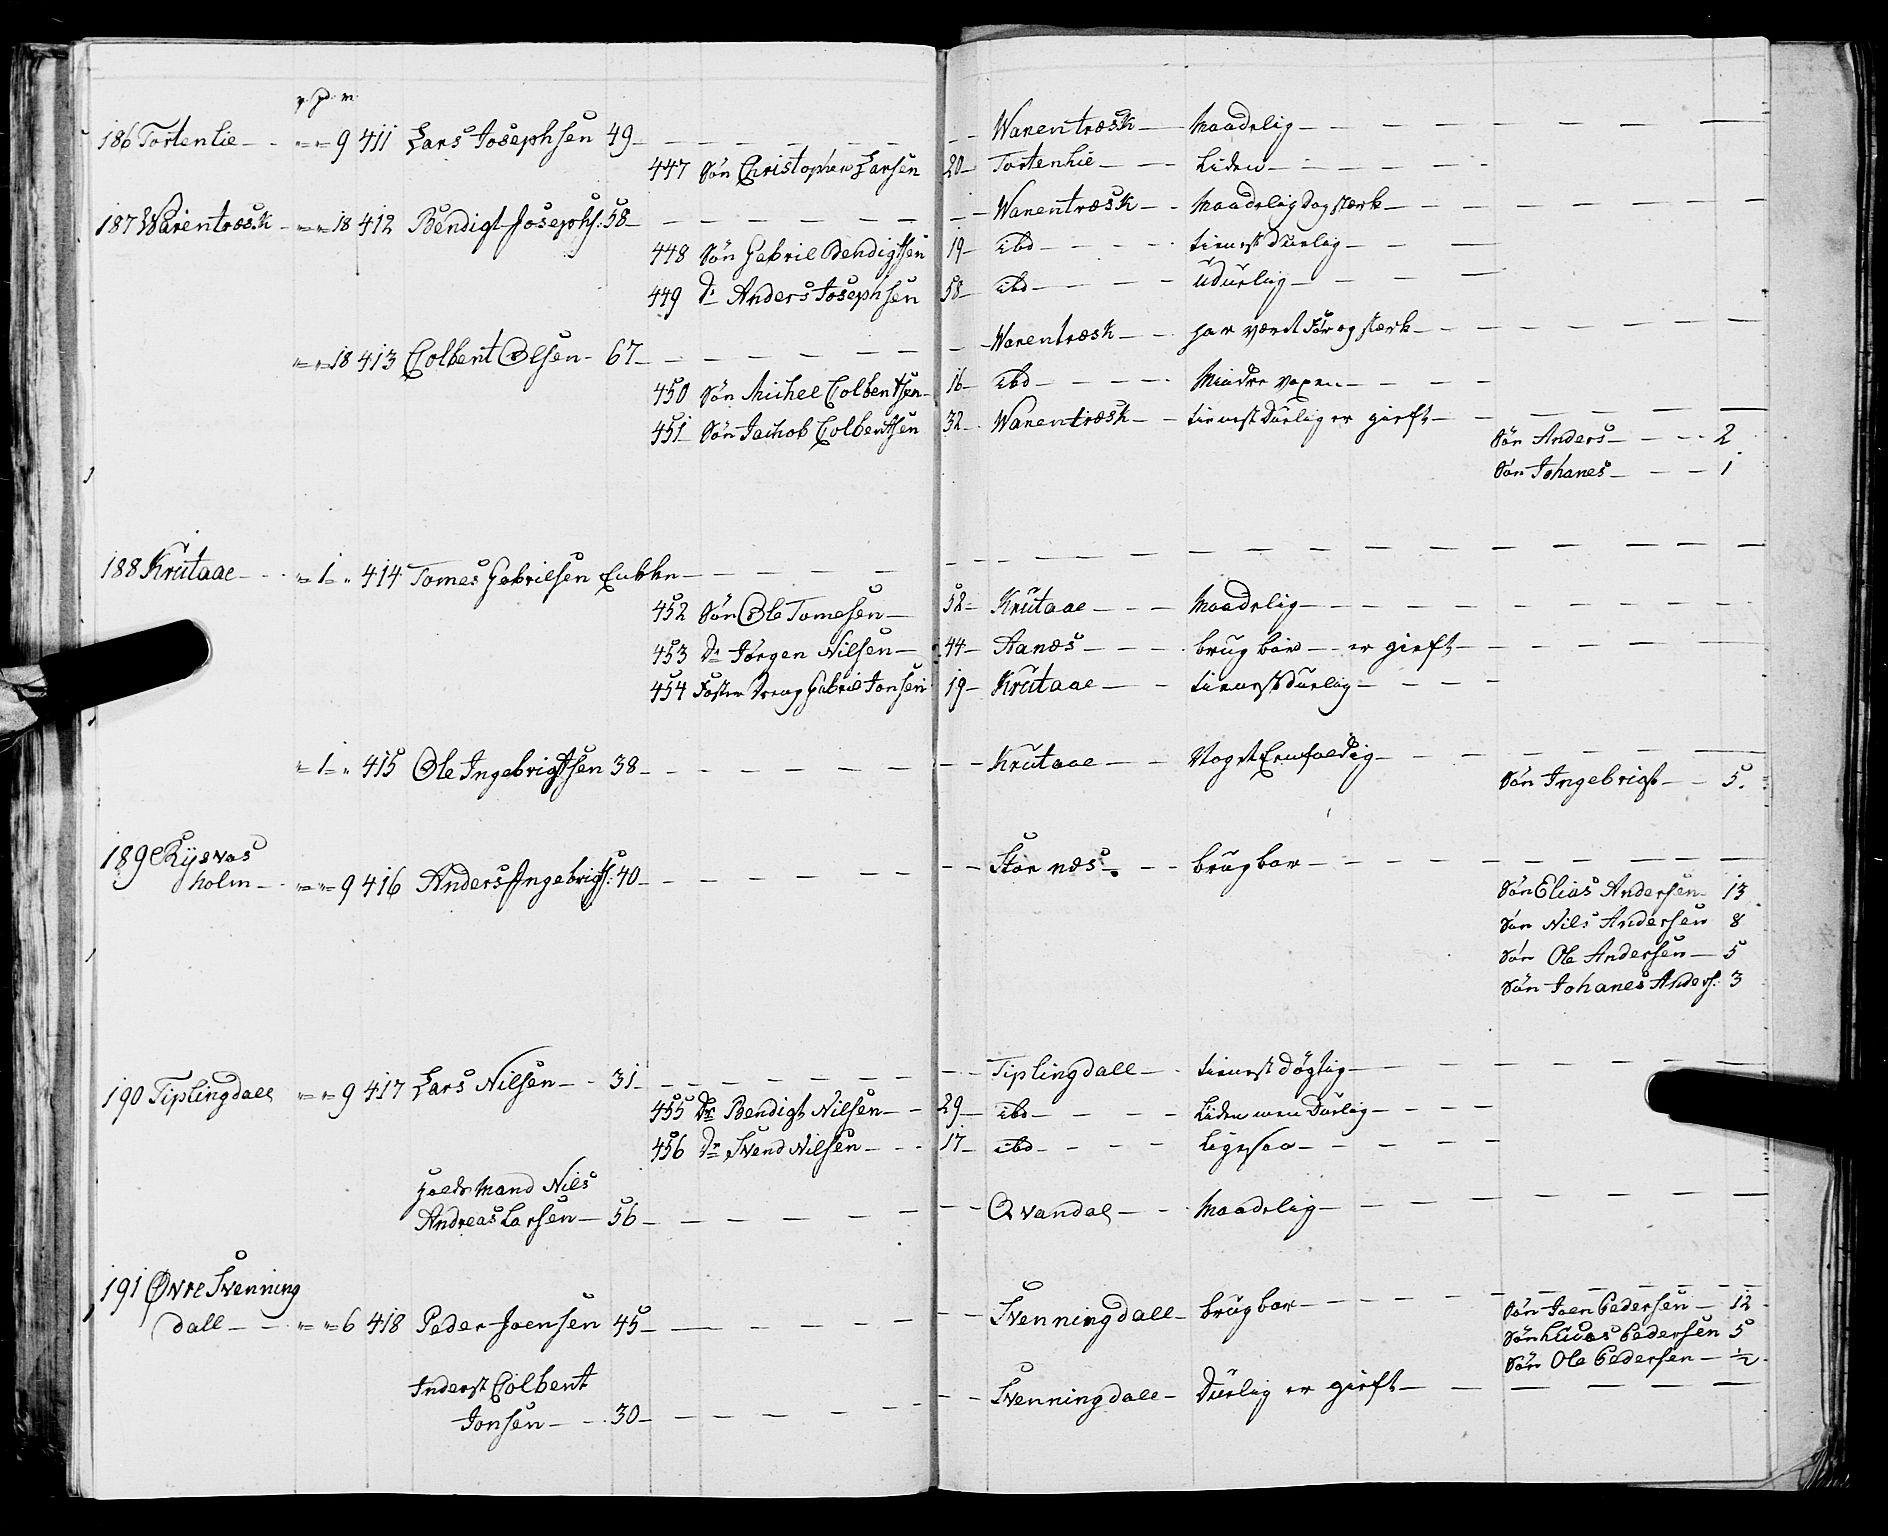 v. pd. m.
186 Tortenlie - - " " 9 411 Lars Josephsen 49 - Warentræsk - Maadelig -
447 Søn Christopher Larsen 20 - Tortenlie - - - Liden -
187 Warentræsk - " " 18 412 Bendigt Josephs: 58 - Warentræsk - - Maadelig dog stærk -
448 Søn Gabriel Bendigtsen 19 - ibd - - - tienestdurlig -
449 Dº Anders Josephsen 58 - ibd - - - udurlig -
" " 18 413 Colbent Olsen - 67 - Warentræsk - - har været før og stærk -
450 Søn Michel Colbentsen - 16 - ibd - - - Mindre voxen -
451 Søn Jachob Colbentsen 32 - Warentræsk - - tienestdurlig er gieft -
Søn Anders - - - 2
Søn Johanes - - - 1
188 Krutaae - - " 1 - " 414 Tomes Gabrielsen Enkke -
452 Søn Ole Tomesen - 52 - Krutaae - - - Maadelig -
453 Dº Jørgen Nilsen - 44 - Aanæs - - - brugbar - er gieft -
454 Foster Dreng Gabriel Jonsen 19 - Krutaae - - tienestdurlig -
" 1 - " 415 Ole Ingebrigtsen 38 - Krutaae - - Noget Eenfoldig -
Søn Ingebrigt - - 5.
189 Rysvas
holm - - " " 9 416 Anders Ingebrigts: 40 - Stornæs - - brugbar -
Søn Elias Andersen - 13
Søn Nils Andersen 8
Søn Ole Andersen - 5
Søn Johanes Anders: 3
190 Tiplingdall " " 9 417 Lars Nilsen - - 31 - Tiplingdall - - tienestdøgtig -
455 Dº Bendigt Nilsen - - 29 - ibd - - - Liden men Durlig -
456 Dº Svend Nilsen - - - 17 - ibd - - - Ligesaa -
Mand Nils
Andreas Larsen - 56 - Qvandal - - Maadelig -
191 Øvre Svenning
dall - - " " 6 418 Peder Joensen 45 - Svenningdall - brugbar - Søn Joen Pedersen - 12
Søn Lucas Pedersen 5
Søn Ole Pedersen - ½
Inderst Colbent
Jonsen - - 30 - Svenningdall - Durlig er gieft -